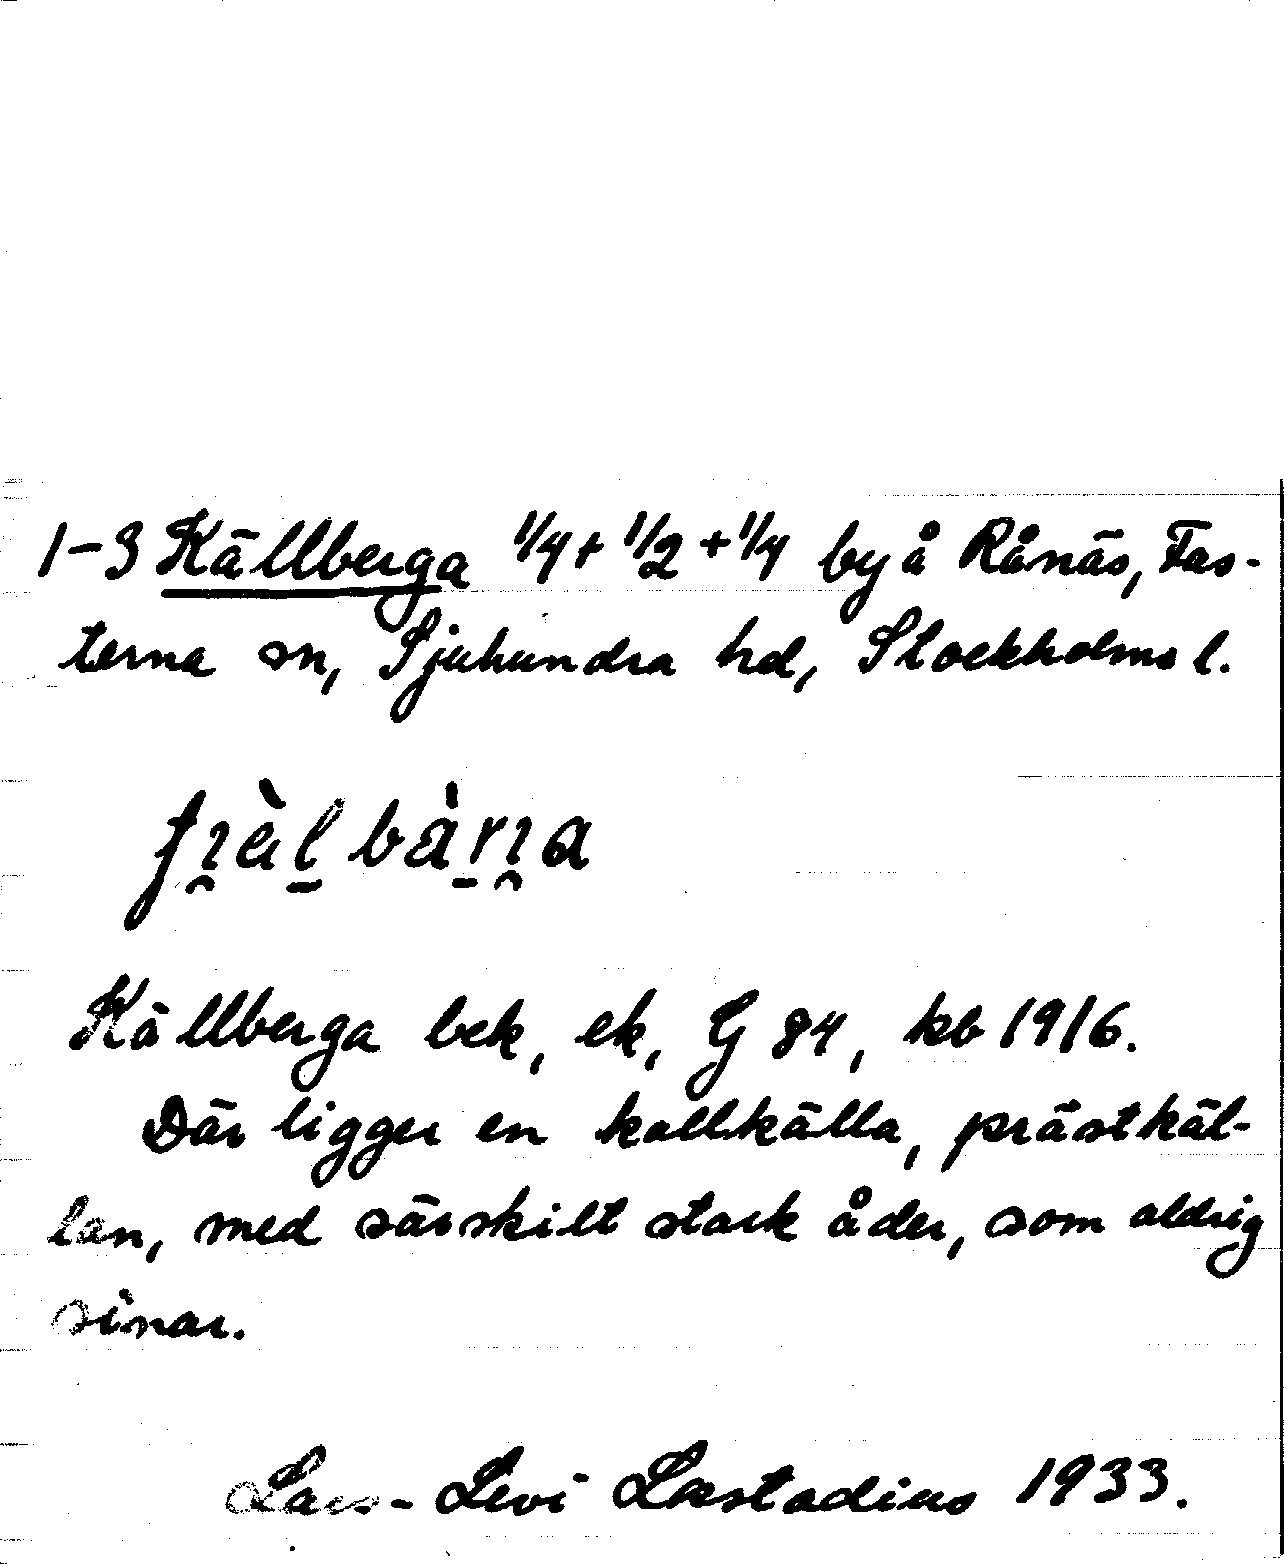 1-3 Källberga 1/4 + 1/2 + 1/4 by å Rånäs, Fas-
terna sn, Sjuhundra hd, Stockholms l.
Källberga bek, ek, G 84, kb 1916.
Där ligger en kallkälla, prästkäl-
lan, med särskilt stark åder, som aldrig
sinar.
Lars-Levi Læstadius 1933.